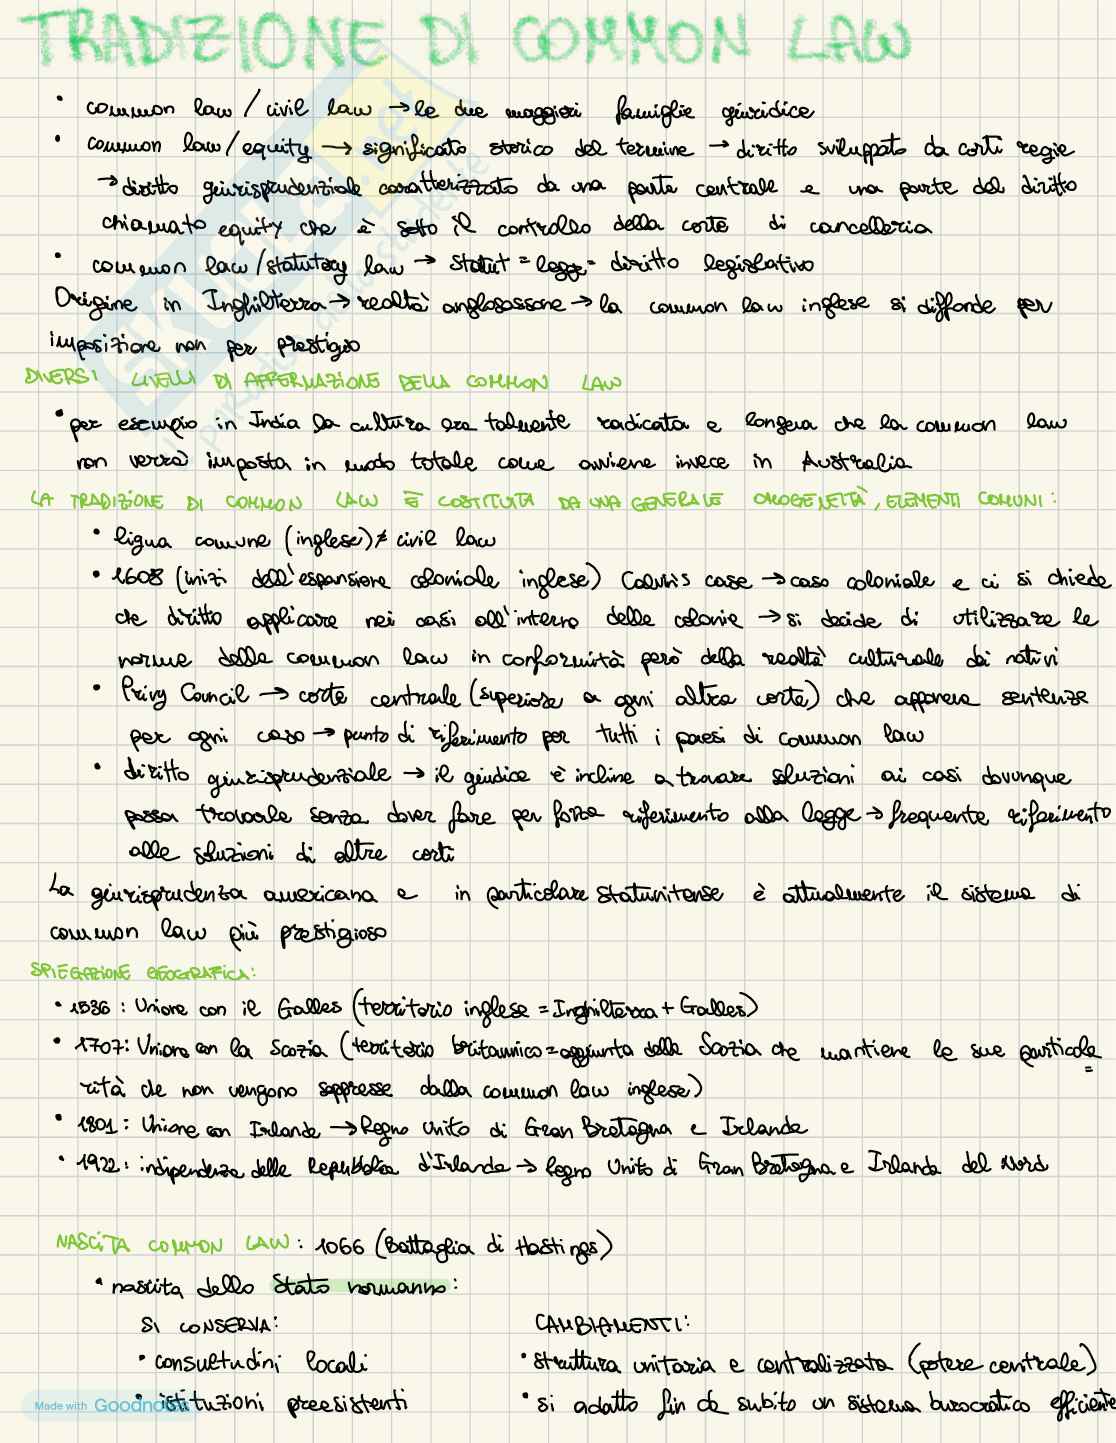 TRADIZIONE DI COMMON LAW
• common law / civil law → le due maggiori famiglie giuridice
• common law / equity → significato storico del termine → diritto sviluppato da corti regie
→ diritto giurisprudenziale caratterizzato da una parte centrale e una parte del diritto
chiamato equity che è sotto il controllo della corte di cancelleria
• common law / statutory law → statut = legge = diritto legislativo
Origine in Inghilterra → realtà anglosassone → la common law inglese si diffonde per
imposizione non per prestigio
DIVERSI LIVELLI DI AFFERMAZIONE DELLA COMMON LAW
• per esempio in India la cultura era talmente radicata e longeva che la common law
non verrà imposta in modo totale come avviene invece in Australia
LA TRADIZIONE DI COMMON LAW È COSTITUITA DA UNA GENERALE OMOGENEITÀ, ELEMENTI COMUNI:
• ligua comune (inglese) ≠ civil law
• 1608 (inizi dell'espansione coloniale inglese) Calvin's case → caso coloniale e ci si chiede
che diritto applicare nei casi all'interno delle colonie → si decide di utilizzare le
norme della common law in conformità però della realtà culturale dei nativi
• Privy Council → corte centrale (superiore a ogni altra corte) che apponeva sentenze
per ogni caso → punto di riferimento per tutti i paesi di common law
• diritto giurisprudenziale → il giudice è incline a trovare soluzioni ai casi dovunque
possa trovarle senza dover fare per forza riferimento alla legge → frequente riferimento
alle soluzioni di altre corti
La giurisprudenza americana e in particolare statunitense è attualmente il sistema di
common law più prestigioso
SPIEGAZIONE GEOGRAFICA:
• 1536: Unione con il Galles (territorio inglese = Inghilterra + Galles)
• 1707: Unione con la Scozia (territorio britannico = aggiunta della Scozia che mantiene le sue particola=
rità che non vengono soppresse dalla common law inglese)
• 1801: Unione con Irlanda → Regno Unito di Gran Bretagna e Irlanda
• 1922: indipendenza della Repubblica d'Irlanda → Regno Unito di Gran Bretagna e Irlanda del Nord
NASCITA COMMON LAW: 1066 (Battaglia di Hastings)
• nascita dello Stato normanno:
SI CONSERVA:
• consuetudini locali
• istituzioni preesistenti
CAMBIAMENTI:
• struttura unitaria e centralizzata (potere centrale)
• si adatta fin da subito un sistema burocratico efficiente
Made with Goodnotes